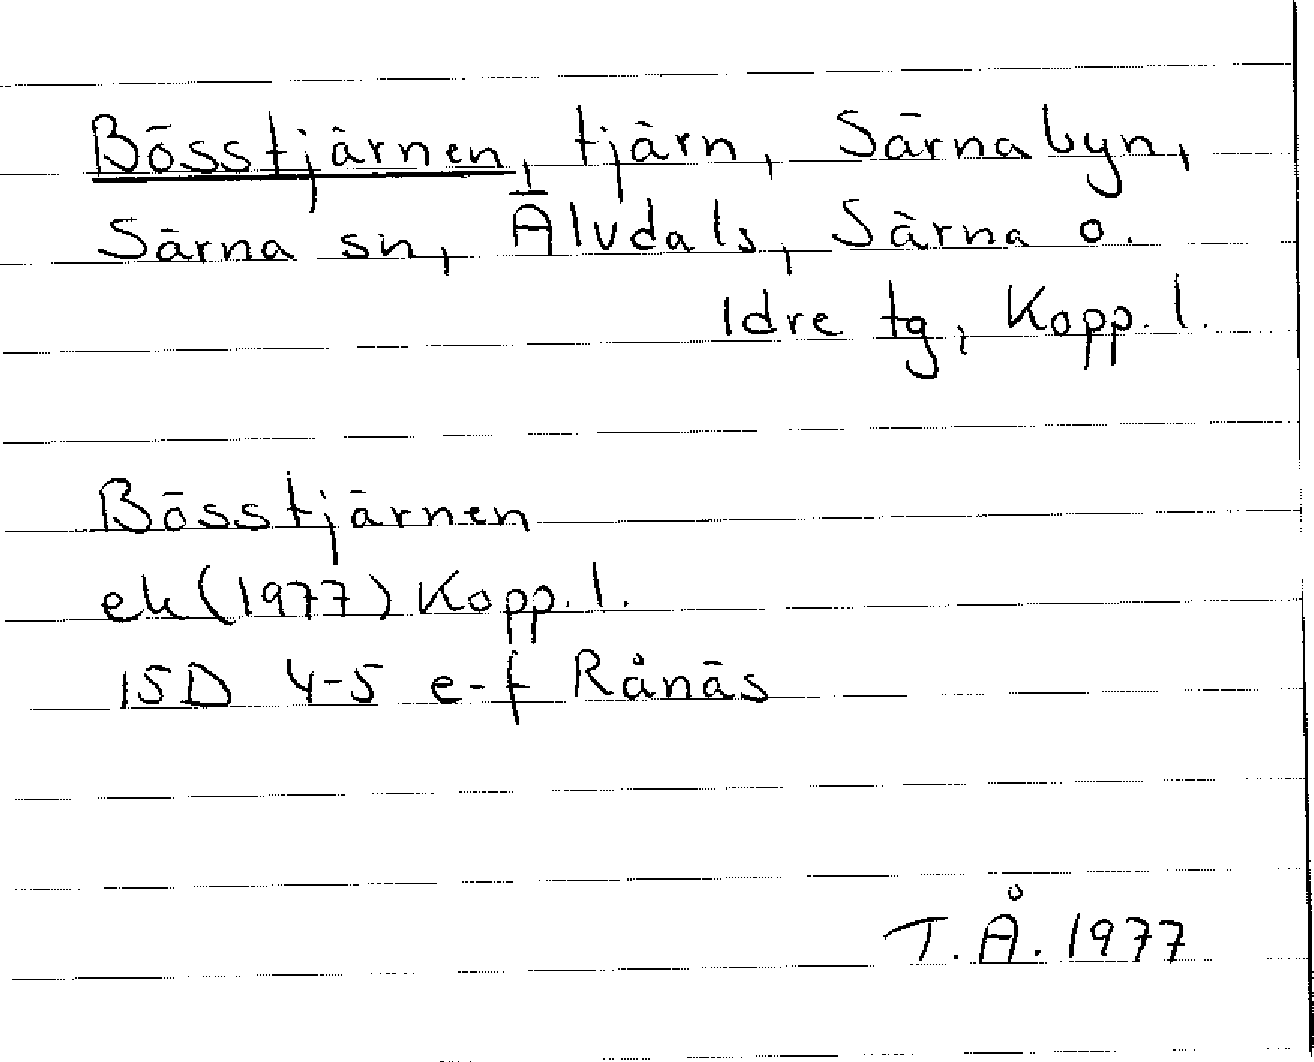 Bösstjärnen, tjärn, Särnabyn,
Särna sn, Älvdals, Särna o.
Idre tg, Kopp. l.
Bösstjärnen
ek (1977) Kopp. l.
15D 4-5 e-f Rånäs
T.Å. 1977